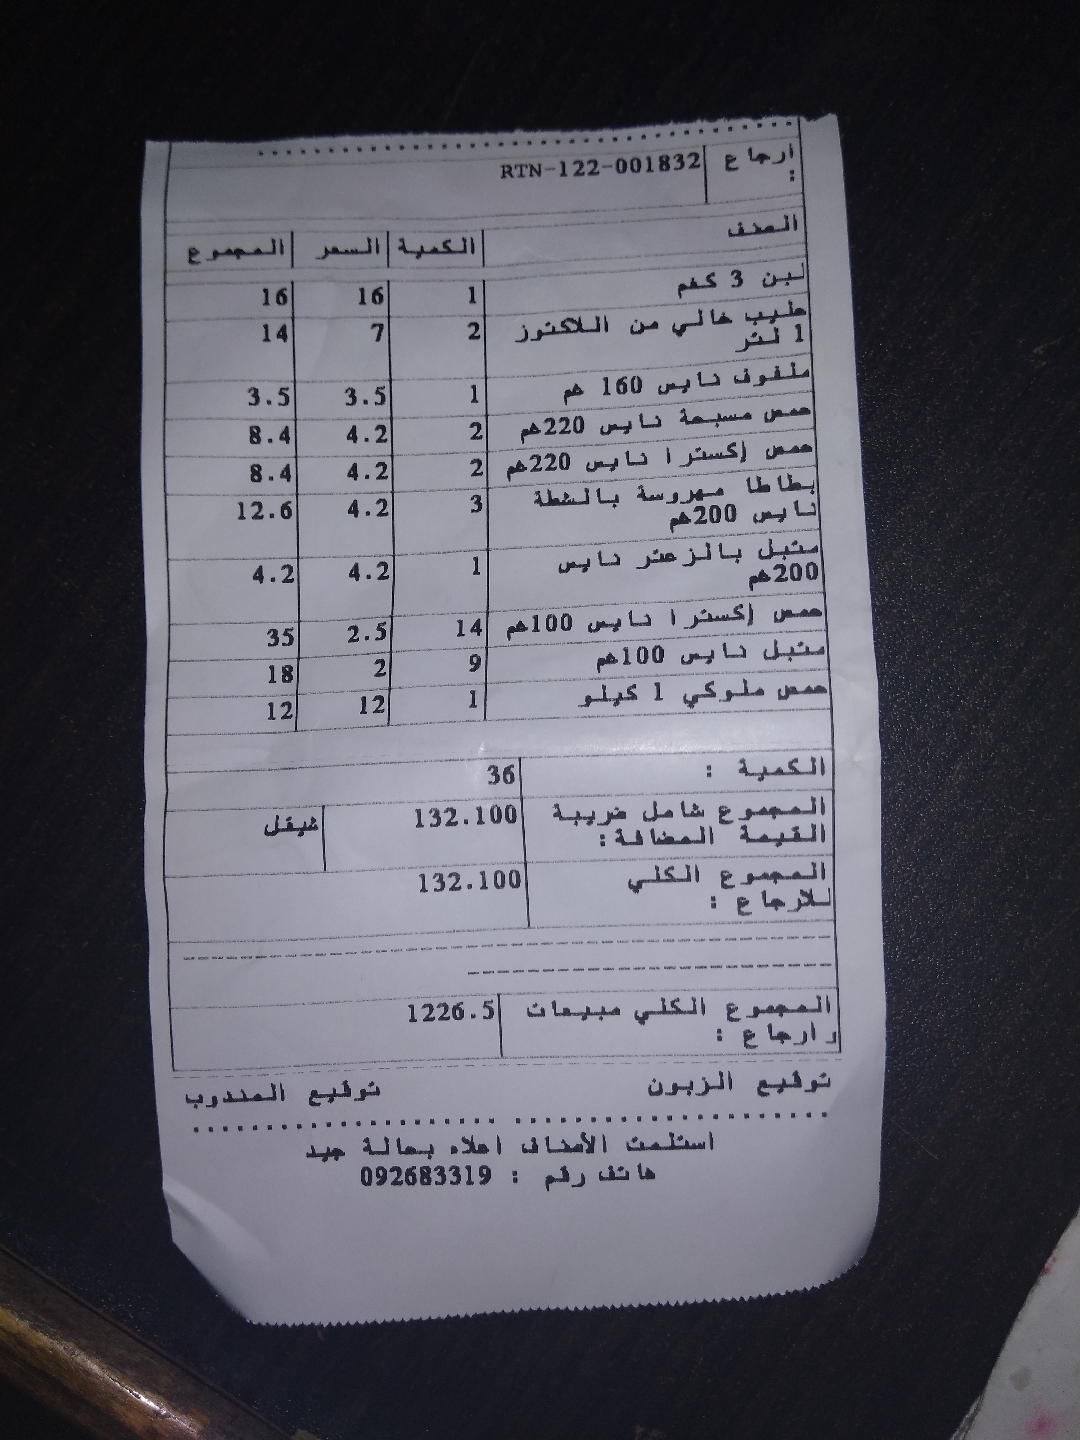 ارجاع : RTN-122-001832
الصنف الكمية السعر المجموع
لبن 3 كغم 1 16 16
حليب خالي من اللاكتوز 2 7 14
1 لتر
ملفوف نايس 160 غم 1 3.5 3.5
حمص مسبحة نايس 220غم 2 4.2 8.4
حمص إكسترا نايس 220غم 2 4.2 8.4
بطاطا مهروسة بالشطة 3 4.2 12.6
نايس 200غم
متبل بالزعتر نايس 1 4.2 4.2
200غم
حمص إكسترا نايس 100غم 14 2.5 35
متبل نايس 100غم 9 2 18
حمص ملوكي 1 كيلو 1 12 12
الكمية : 36
المجموع شامل ضريبة 132.100 شيقل
القيمة المضافة :
المجموع الكلي 132.100
للارجاع :
المجموع الكلي مبيعات 1226.5
وارجاع :
توقيع الزبون توقيع المندوب
استلمت الأصناف اعلاه بحالة جيد
هاتف رقم : 092683319